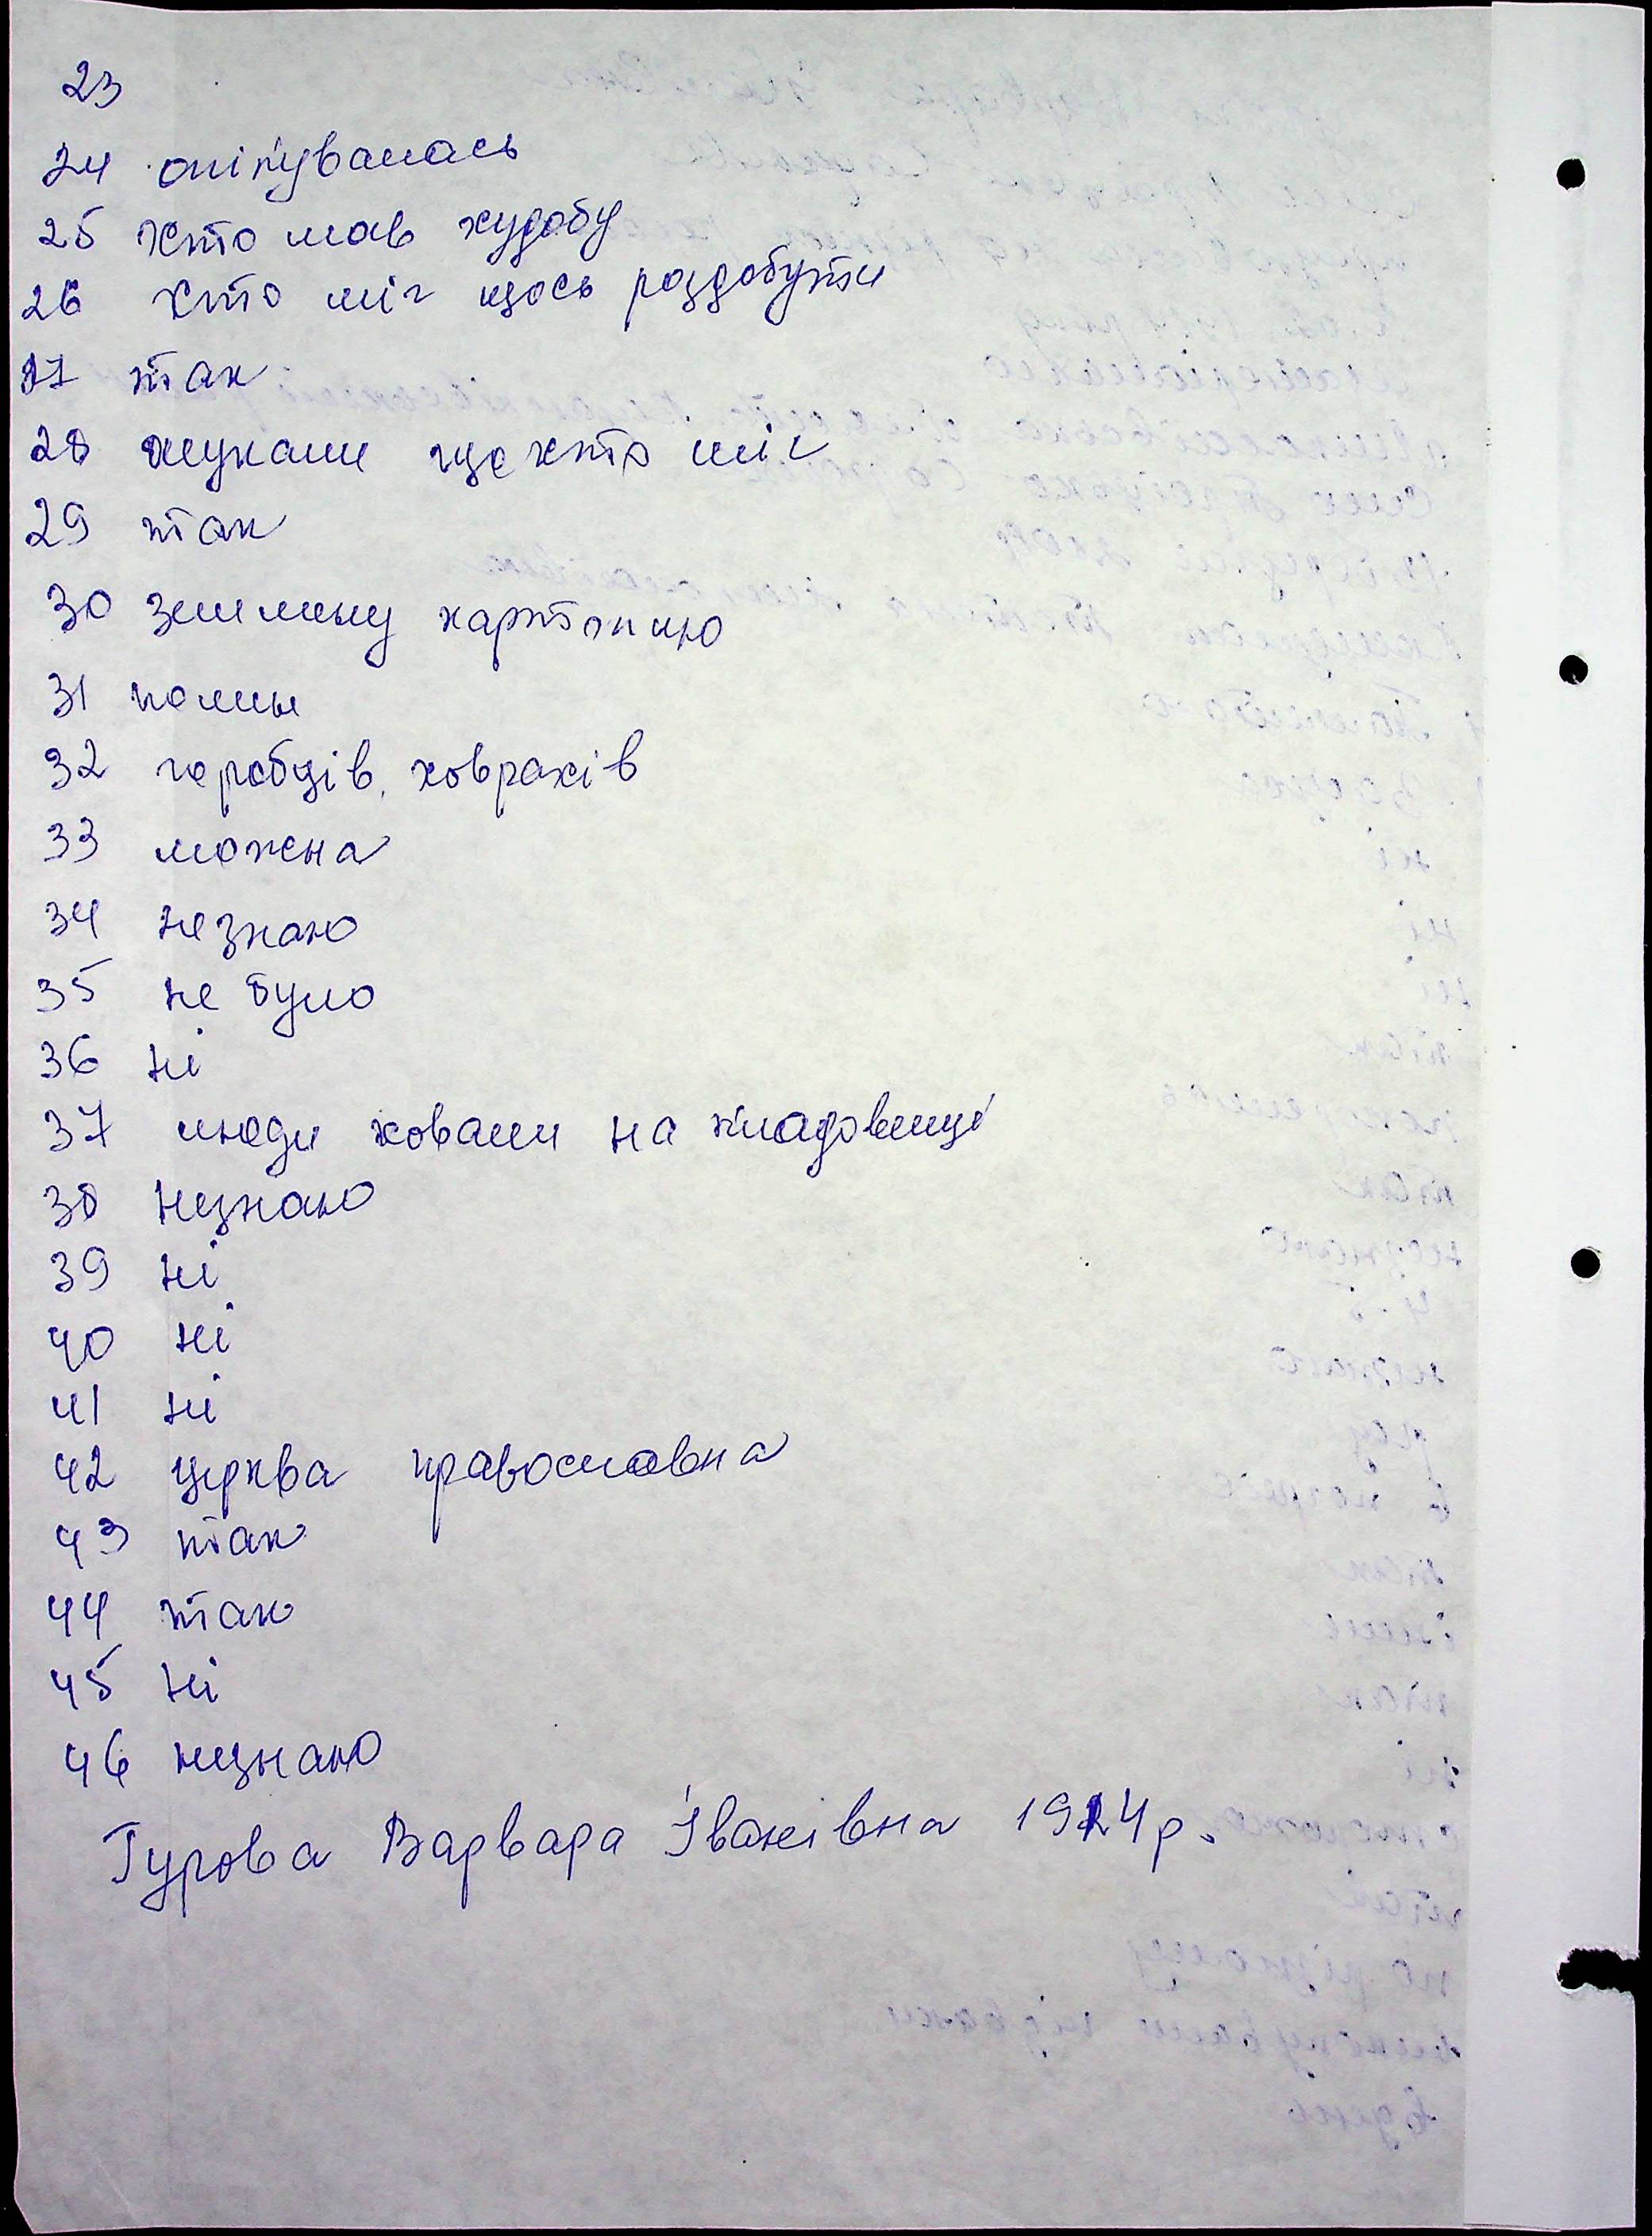 23
24 опікувалась
25 хто мав худобу
26 хто міг щось роздобути
27 так
28 шукали ще хто міг
29 так
30 землину картоплю
31 полин
32 горобців, ховрахів
33 можна
34 незнаю
35 не було
36 ні
37 люди ховали на кладовищі
38 незнаю
39 ні
40 ні
41 ні
42 церква православна
43 так
44 так
45 ні
46 незнаю
Гурова Варвара Іванівна 1924р.